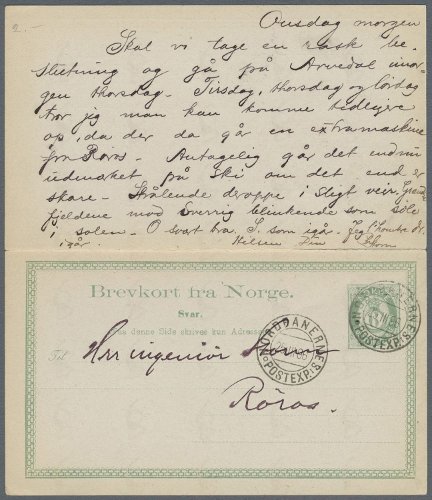 2.-
Onsdag morgen
Skal vi tage en rask be-
slutning og gå på Arvedal imor-
gen thorsdag. Tirsdag, thorsdag og lördag
tror jeg man kan komme tidligere
op, da der da går en extramaskine
fra Röros. Antagelig går det endnu
udmærket på Ski om det end er
skare. Strålende deroppe i sligt veir,
fjeldene mod Sverrig blinkende som sölv
i solen. O svart fra S. som igår. Jeg
igår. Hilsen Din
Brevkort fra Norge.
Svar.
(Paa denne Side skrives kun Adressen.)
Til Hrr ingeniör
Röros.
NORDDANERNES
POSTEXP:
NORDDANERNES
POSTEXP: